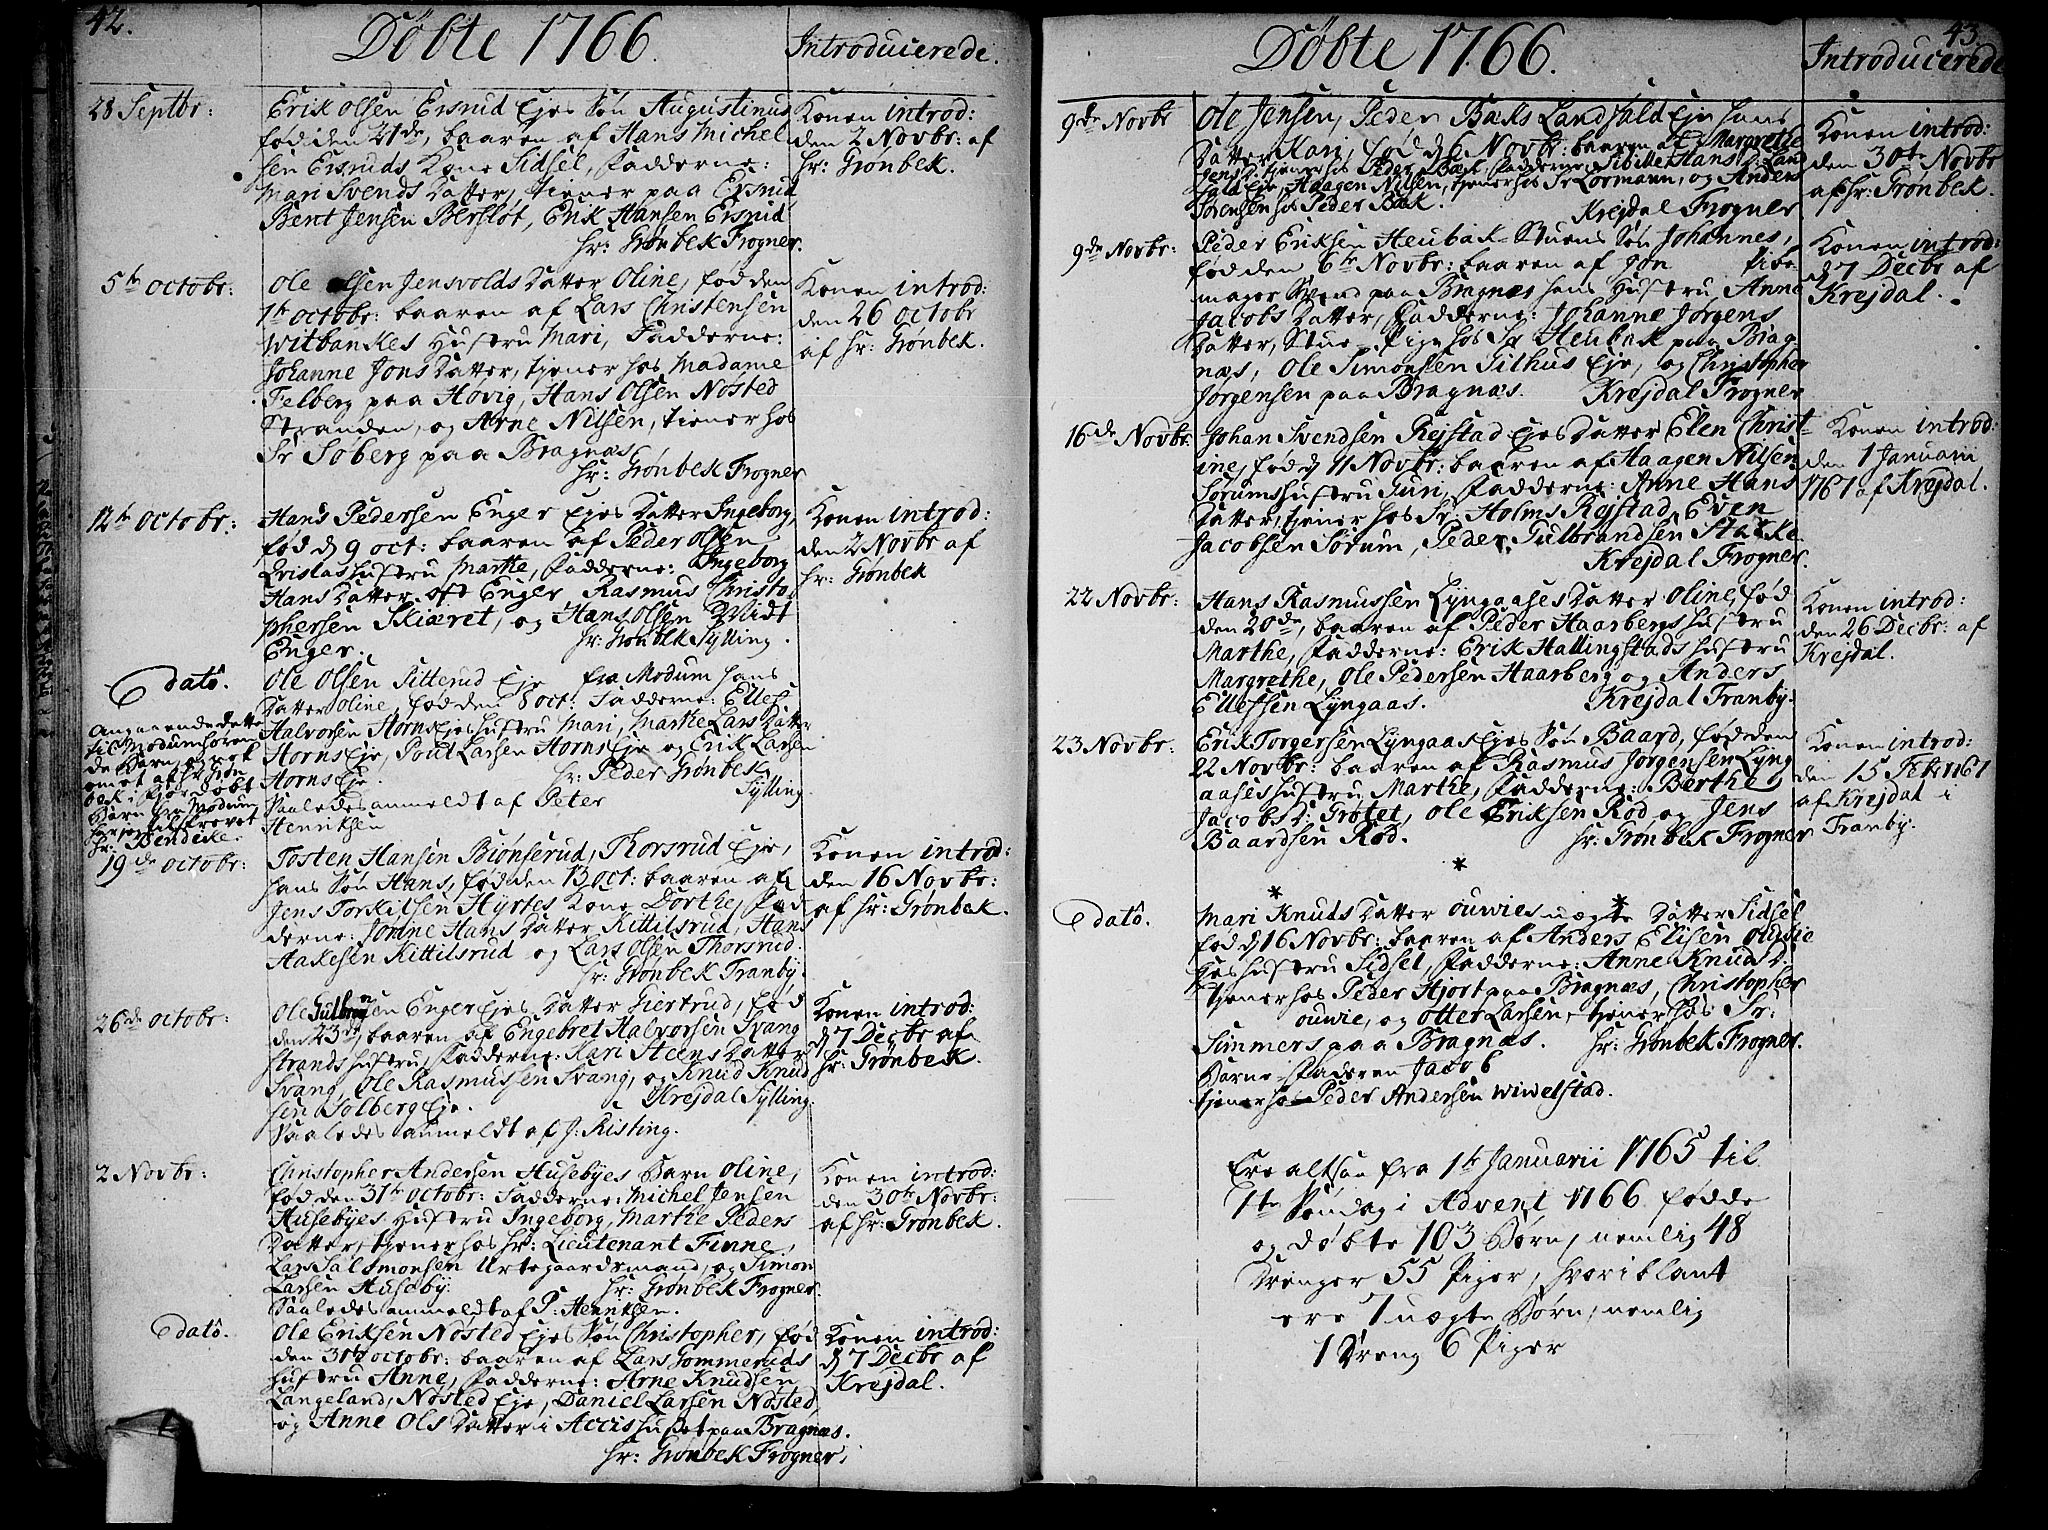 42.
Döbte 1766.
Introducerede.
28 Septbr:
Erik Olsen Ersrud Ejes Søn Augustinus
fød den 21de, baaren af Hans Michel
sen Ersruds Kone Sidsel, Fadderne:
Mari Svends Datter, tiener paa Ersrud
Bent Jensen Bersløt, Erik Hansen Ersrud
hr: Grønbek Frogner.
Konen introd:
den 2 Novbr: af
hr: Grønbek.
5te Octobr:
Ole Olsen Jensvolds Datter Oline, fød den
1te Octobr: baaren af Lars Christensen
Witbankes Hustru Mari, Fadderne:
Johanne Jons Datter, tjener hos Madame
Felberg paa Høvig, Hans Olsen Nøsted
Stranden, og Arne Nilsen, tiener hos
Sr Søberg paa Bragnæs.
hr: Grønbek Frogner
Konen introd:
den 26 Octobr
af hr: Grønbek.
12te Octobr:
Hans Pedersen Enger Ejes Datter Ingeborg,
fød d 9 Oct: baaren af Peder Olsen
Qvislas hustru Marthe, Fadderne: Ingeborg
Hans Datter Enger Rasmus Christo
phersen Skiæret, og Hans Olsen
Enger.
hr: Grønbek Sylling.
Konen introd:
den 2 Novbr af
hr: Grønbek
E dato.
Ole Olsen Sitterud Eje fra Modum hans
Datter Oline, fød den 8 Oct: Fadderne: Ellef
Halvorsen Horns Ejes hustru Mari, Marthe Lars Datter
Horns Eje, Poul Larsen Horns Eje og Erik Larsen
Horns Eje.
hr: Peder Grønbek
Sylling
Saaledes anmeldt af Peter
Henriksen
Angaaende dette
til Modum høren
de Barn, og nok
omet af hr: Grøn
bek i Fjor døbt
Barn fra Modum
har jeg tilskrevet
hr: Bendeke.
19de Octobr:
Tosten Hansen Biønserud, Thorsrud Eje,
hans Søn Hans, fød den 13 Oct: baaren af
Jens Torkilsen Hyrtes Kone Dorthe, Fad
derne: Jomne Hans Datter Kittilsrud, Hans
Aakesen Kittilsrud og Lars Olsen Thorsrud.
hr: Grønbek Tranby.
Konen introd:
den 16 Novbr:
af hr: Grønbek.
26de Octobr:
Ole Gulbransen Enger Ejes Datter Giertrud, fød
den 23de, baaren af Engebret Halvorsen Svang
strands hustru, Fadderne: Kari Steens Datter
Svang, Ole Rasmussen Svang, og Knud Knud
sen Solberg Eje.
Krejdal Sylling.
Saaledes anmeldt af J: Risting.
Konen introd:
d 7 Decbr af
hr: Grønbek.
2 Novbr:
Christopher Andersen Husebyes Barn Oline,
fød den 31te Octobr: Fadderne: Michel Jensen
Husebyes Hustru Ingeborg, Marthe Peders
Datter, tjener hos hr: Lieutenant Finne,
Lars Salomonsen Urtegaardsmand, og Simon
Larsen Huseby.
hr: Grønbek Frogner.
Saaledes anmeldt af P: Henriksen.
Konen introd:
den 30te Novbr:
af hr: Grønbek.
E dato.
Ole Eriksen Nøsted Ejes Søn Christopher, fød
den 31te Octobr: baaren af Lars Gommeruds
hustru Anne, Fadderne: Arne Knudsen
Langeland, Nøsted Eje, Daniel Larsen Nøsted
og Anne Ols Datter i Accishuset paa Bragnæs.
hr: Grønbek Frogner.
Konen introd:
d 7 Decbr af
Krejdal.
43
Døbte 1766.
Introducerede
9de Novbr
Ole Jensen, Peder Bæks Landfald Eje hans
Datter Kari, fød d 6 Novbr: baaren af Margrethe
Jens D: tjener hos Peder Bæk, Fadderne: Sibille Hans D: Land
fald Eje, Haagen Nilsen, tjener hos Sr Loormann, og Anders
Sørensen hos Peder Bæk.
Krejdal Frogner
Konen introd:
den 30te Novbr
af hr: Grønbek.
9de Novbr:
Peder Eriksen Heubæk-Stuens Søn Johannes,
fød den 6te Novbr: baaren af Jon Pibe
mager Svend paa Bragnæs hans Hustru Anne
Jacobs Datter, Fadderne: Johanne Jørgens
Datter, Stue-Pige hos Sr Heubæk paa Brag
næs, Ole Simonsen Gilhus Eje, og Christopher
Jørgensen paa Bragnæs. Krejdal Frogner
Konen introd:
d 7 Decbr af
Krejdal.
16de Novbr:
Johan Svendsen Rejstad Ejes Datter Elen Christ
ine, fød d 11 Novbr: baaren af Haagen Nilsen
Sørums hustru Guri, Fadderne: Anne Hans
Datter, tjener hos Sr: Holms Rejstad, Even
Jacobsen Sørum, Peder Gulbrandsen Stakke
Krejdal Frogner.
Konen introd:
den 1 Januari
1767 af Krejdal.
22 Novbr:
Hans Rasmussen Lyngaases Datter Oline, fød
den 20de, baaren af Peder Haarbergs hustru
Marthe, Fadderne: Erik Hallingstads hustru
Margrethe, Ole Pedersen Haarberg og Anders
Ellefsen Lyngaas. Krejdal Tranby.
Konen introd:
den 26 Decbr: af
Krejdal.
23 Novbr:
Erik Torgersen Lyngaas Ejes Søn Baard, fød den
22 Novbr: baaren af Rasmus Jørgensen Lyng
aases hustru Marthe, Fadderne: Berthe
Jacobs D: Grøtet, Ole Eriksen Rød og Jens
Baardsen Rød. hr: Grønbek Frogner
Konen introd:
den 15 Febr 1767
af Krejdal i
Tranby.
E dato.
Mari Knuds Datter Ouwies uægte Datter Sidsel
fød d 16 Novbr: baaren af Anders Elisen Ouwie
Ejes hustru Sidsel, Fadderne: Anne Knuds D:
tjener hos Peder Hjort paa Bragnæs, Christopher
Ouwie, og Otter Larsen, tjener hos Sr:
Simmers paa Bragnæs. hr: Grønbek Frogner.
Barne-Faderen Jacob
tjener hos Peder Andersen Wiwelstad.
Ere altsaa fra 1te Januarii 1765 til
1te Søndag i Advent 1766 fødde
og døbte 103 Børn, nemlig 48
Drenger 55 Piger, hvoriblant
ere 7 uægte Børn, nemlig
1 Dreng 6 Piger